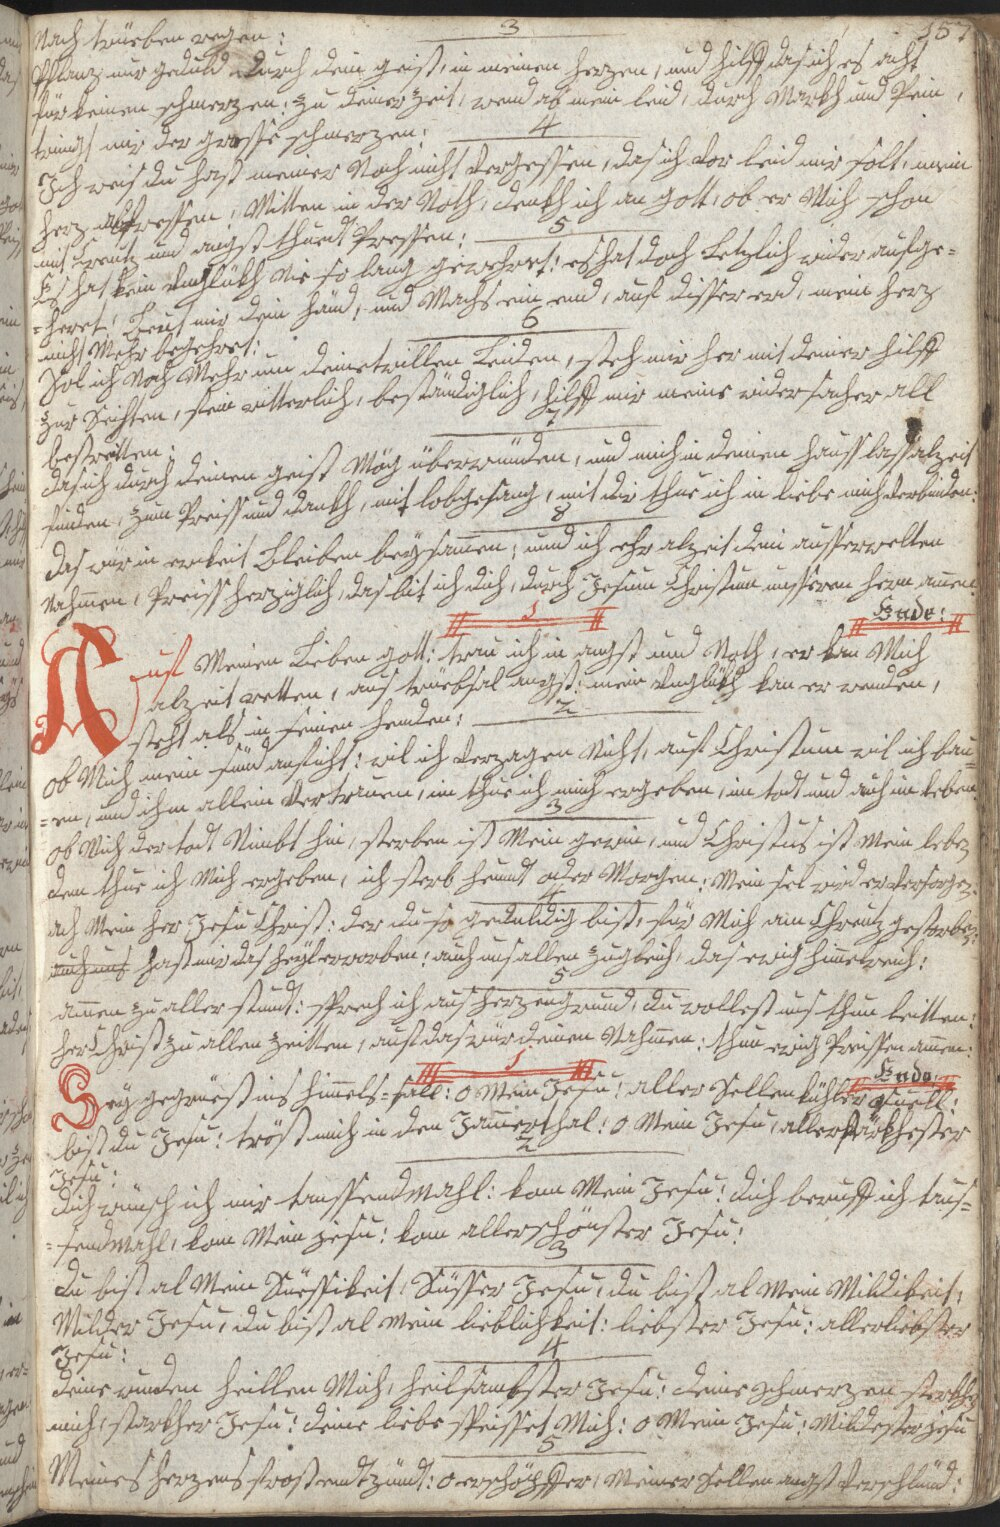 157
Nach trüeben regen:
3
Pflanz nur geduld durch dein geist, in meinen herzen, und hilff das ich es acht
für keinen schmerzen: zu deiner zeit, wend ab mein leid, durch Markh und Pein,
tringt mir der grosse schmerzen:
4
Ich weis du hast meiner Noch nicht Vergessen, das ich Vor leid mir solt, mein
herz abfressen, Mitten in der Noth, denkh ich an gott, ob er Mich schon
mit Creutz und angst thuet Pressen:
5
Es hat kein Unglükh nie so lang gewehret: es hat doch Letzlich wider aufge=
=heret, Beut mir dein händ, und Machs ein end, auf disser erd, mein herz
nicht Mehr begehret:
6
Sol ich Noch Mehr um deinetwillen Leiden, steh mir her mit deiner hilff
zur Seitten, fein ritterlich, beständiglich, hilff mir meine widersacher all
bestreitten:
7
das ich durch deinen geist Mög überwünden, und mich in deinen hauss lass alzeit
finden, zum Preiss und dankh, mit lobgesang, mit dir thue ich in liebe mich Verbinden:
8
das wür in ewikeit Bleiben beysamen, und ich ehr alzeit dein ausserwelten
Nahmen, Preiss herziglich, das bit ich dich, durch Jesum Christum unsseren hern amen:
1
Ende:
Auf Meinen Lieben gott: trau ich in angst und Noth, er kan Mich
alzeit retten, aus trüebsal angst: mein Unglükh kan er wenden,
steht als in seinen henden:
2
ob Mich mein sünd anficht: wil ich Verzagen Nicht, auf Christum wil ich bau=
=en, und ihm allein Vertrauen, im thue ich mich ergeben, im todt und auch im leben:
3
ob Mich der todt Nimbt hin, sterben ist Mein gewin, und Christus ist Mein leben
dem thue ich Mich ergeben, ich sterb heundt oder Morgen: Mein sel wird er Versorgen:
4
ach Mein her Jesu Christ: der du so geduldig bist, für Mich am Chreutz gestorben:
auch uns hast mir das heyl erworben: auch uns allen zugleich, das ewig himelreich:
5
amen zu aller stundt: sprech ich aus herzengrund, du wollest uns thun leitten:
her Christ zu allen zeitten, auf das wür deinen Nahmen: thun ewig Preissen amen:
1
Ende
Sey gegrüest ins himels=sall: o Mein Jesu: aller Sellen kühler quell:
bist du Jesu: tröst mich in den Jamerthal: o Mein Jesu, allerstärkhester
Jesu:
2
Dich wünsch ich mir taussendmahl: kom Mein Jesu: dich berueff ich taus=
=sendmahl, kom Mein jesu: kom allerschönster Jesu:
3
du bist al Mein Süessikeit, Süsser Jesu, du bist al Mein Mildikeit,
Milder Jesu, du bist al Mein lieblichkeit: liebster Jesu: allerliebster
Jesu:
4
deine wunden heillen Mich, heilsambster Jesu: deine schmerzen sterkhen
mich, starkher Jesu: deine liebe speisset Mich: o Mein Jesu: Mildester jesu
5
Meines herzens frost endtzündt: o erschöpffer, Meiner sellen angst Verschlind: